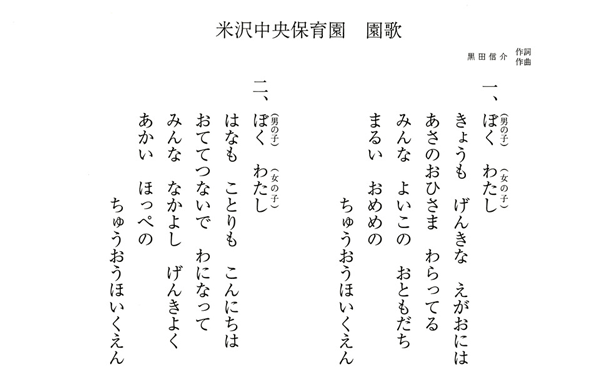 米沢中央保育園　園歌
黒田信介　作詞
作曲
一、ぼく（男の子）　わたし（女の子）
きょうも　げんきな　えがおには
あさのおひさま　わらってる
みんな　よいこの　おともだち
まるい　おめめの
ちゅうおうほいくえん
二、ぼく（男の子）　わたし（女の子）
はなも　ことりも　こんにちは
おててつないで　わになって
みんな　なかよし　げんきよく
あかい　ほっぺの
ちゅうおうほいくえん